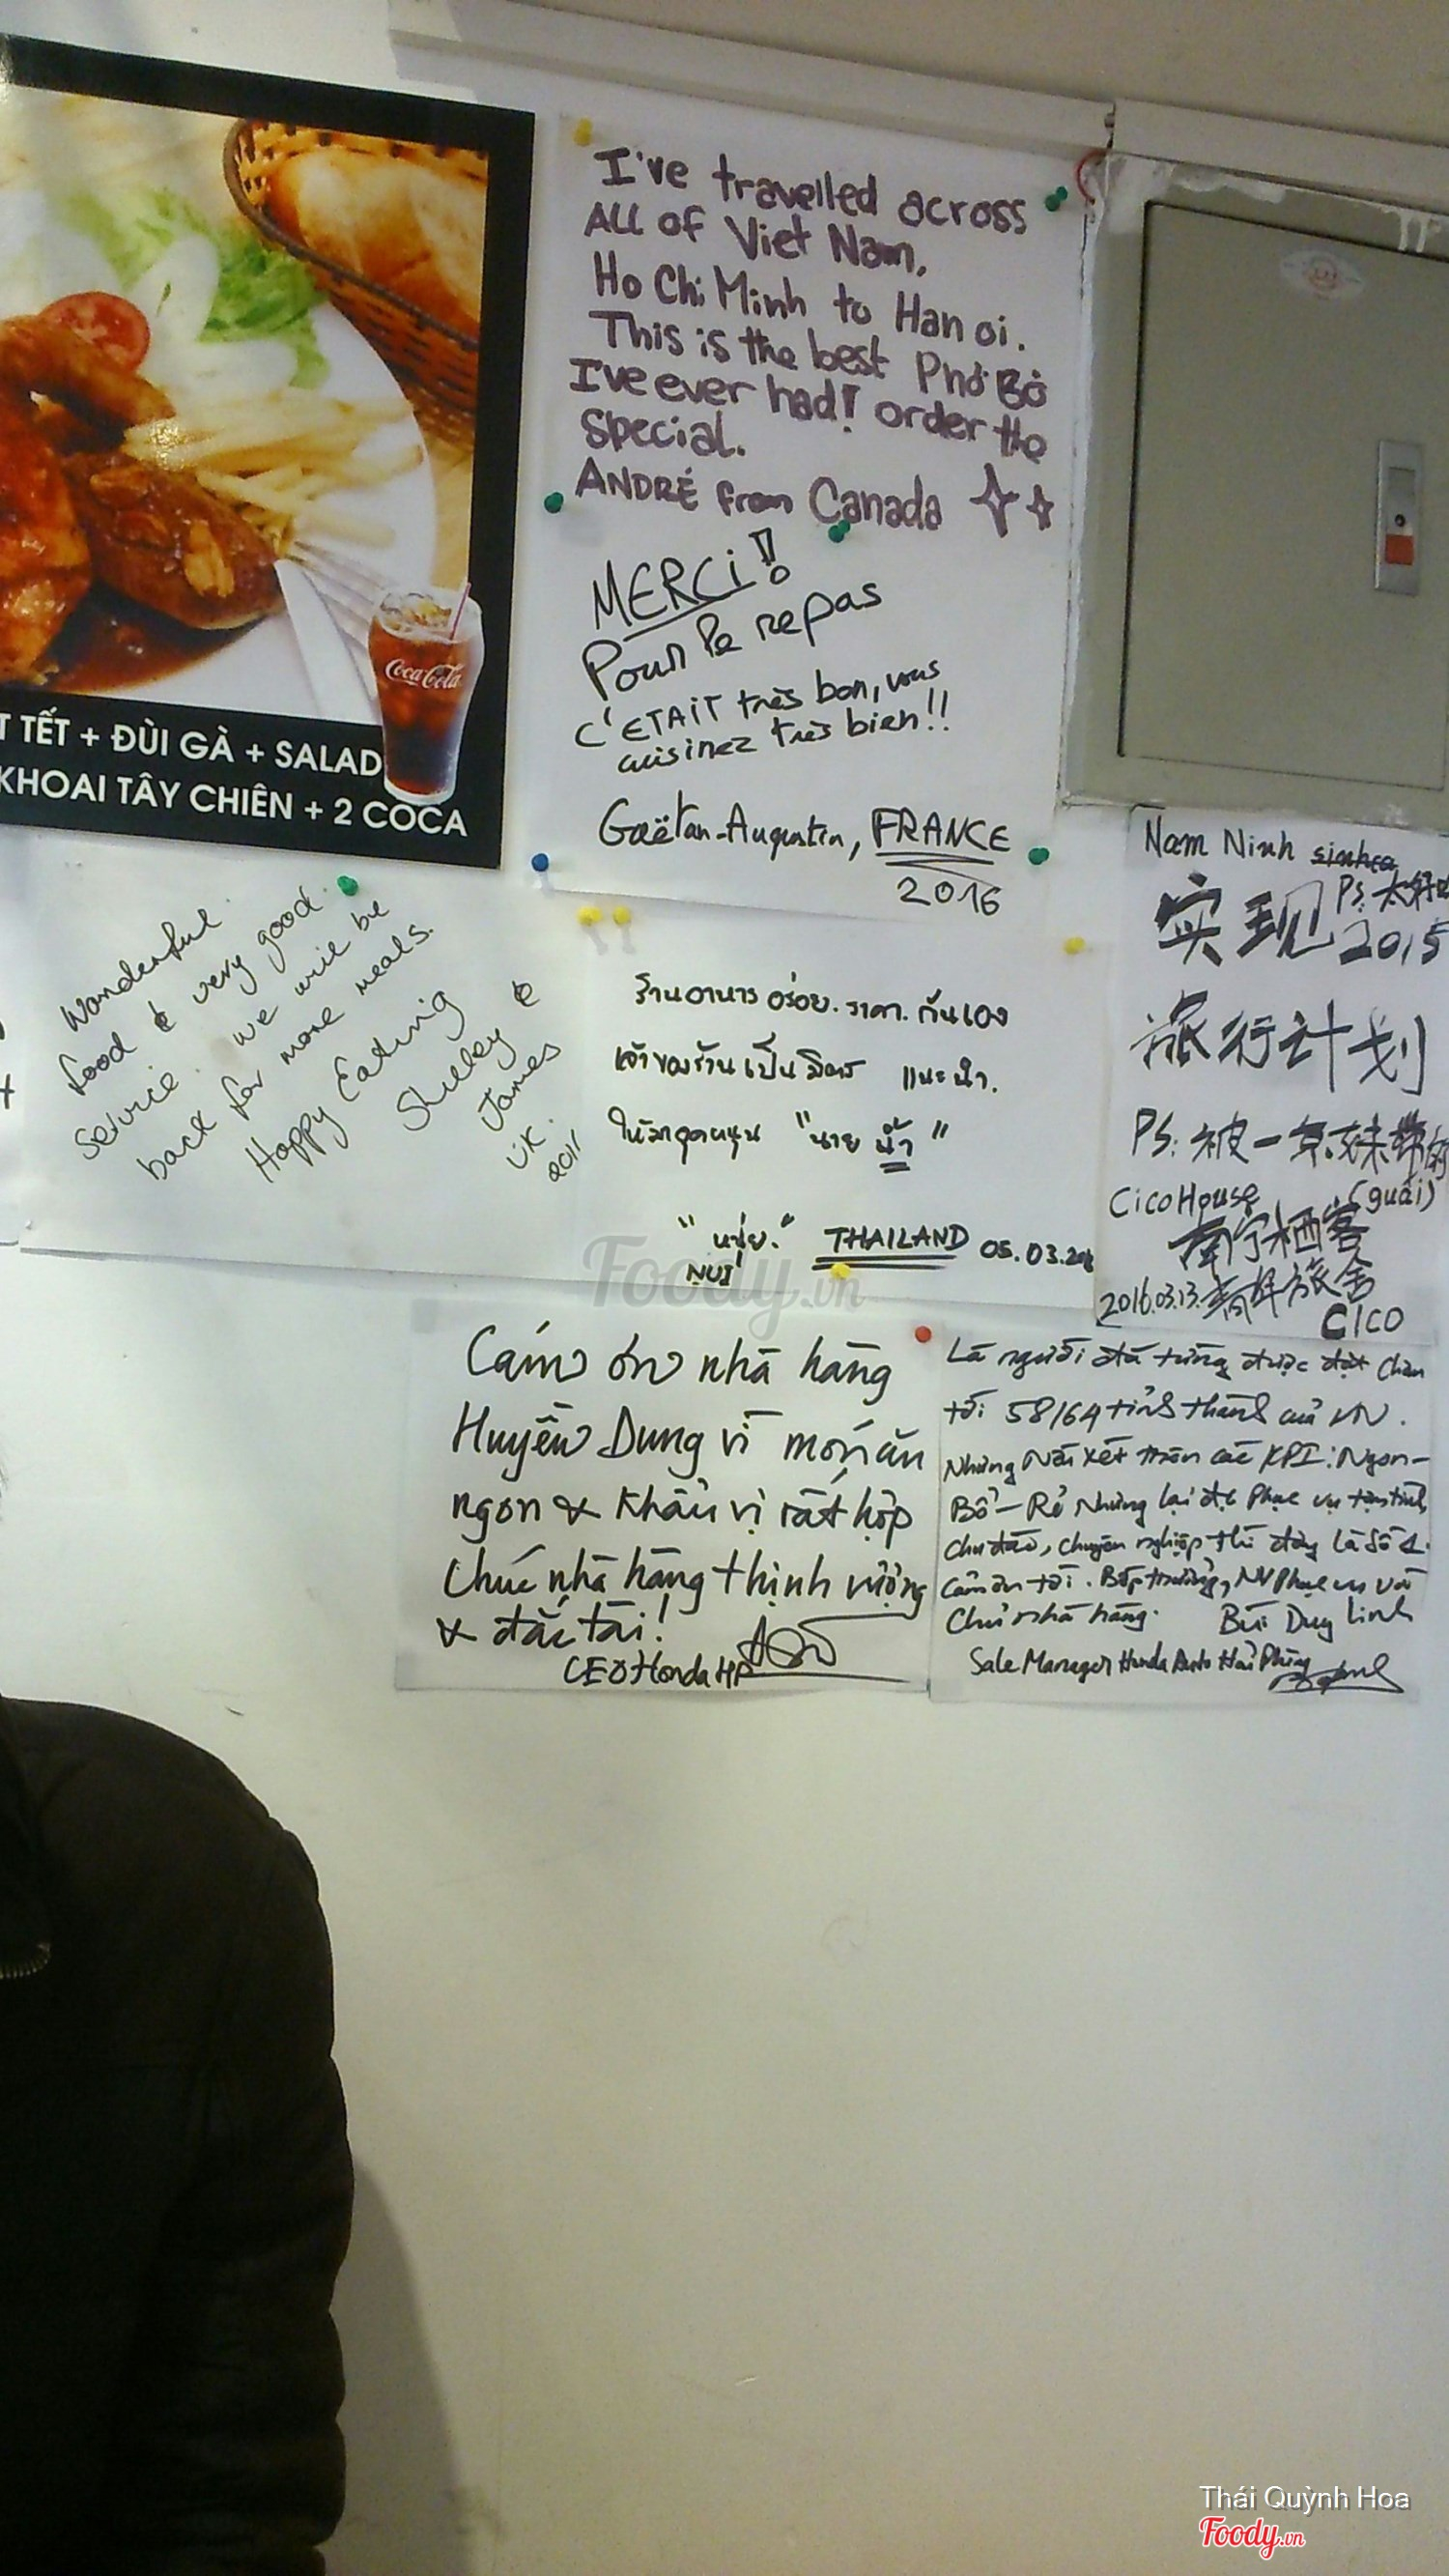 T TẾT + ĐÙI GÀ + SALAD
KHOAI TÂY CHIÊN + 2 COCA
Coca-Cola
I've travelled across
ALL of Viet Nam,
Ho Chi Minh to Han oi.
This is the best Phở Bò
I've ever had! order the
special.
ANDRÉ from Canada
MERCi!!
Pour le repas
C'ETAIT très bon, vous
cuisinez très bien!!
Gaëtan-Augustin, FRANCE
2016
Wonderful
food & very good
service. we will be
back for more meals.
Happy Eating
Shelley &
James
UK.
2011
ร้านอาหาร อร่อย. ราคา. กันเอง
เจ้าของร้าน เป็นมิตร แนะนำ.
"นาย น้ำ"
"หนุ่ย."
NUI
THAILAND 05.03.
Nam Ninh
实现 Ps: 太好
2015
旅行计划
Ps: 被一京妹带
CicoHouse (guǎi)
南宁栖客
2016.03.13. 旅舍
CICO
Cám ơn nhà hàng
Huyền Dung vì món ăn
ngon & khẩu vị rất hợp
Chúc nhà hàng thịnh vượng
& đắc tài!
CEO Honda HP
Là người đã từng được đặt chân
tới 58/64 tỉnh thành của VN.
Những Nơi xét trên các KPI: Ngon-
Bổ - Rẻ Nhưng lại đc phục vụ tận tình,
chu đáo, chuyên nghiệp thì đây là số 1.
Cảm ơn tới. Bếp trưởng, NV phục vụ và
Chủ nhà hàng. Bùi Duy Linh
Sale Manager Honda Auto Hải Phòng
Foody.vn
Thái Quỳnh Hoa
Foody.vn